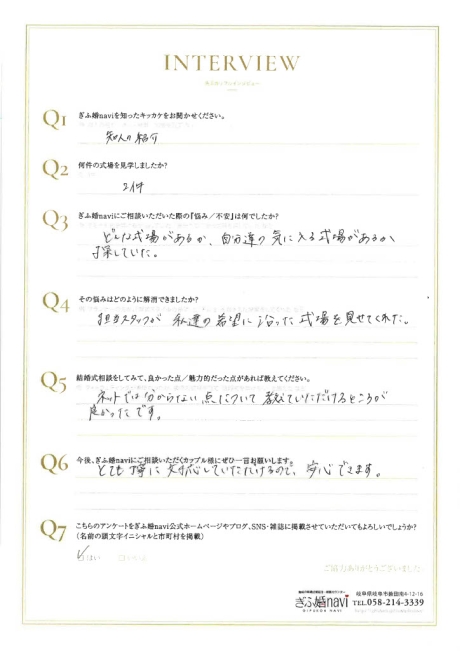 INTERVIEW
Q1 ぎふ婚naviを知ったキッカケをお聞かせください。
知人の紹介
Q2 何件の式場を見学しましたか?
2件
Q3 ぎふ婚naviにご相談いただいた際の『悩み／不安』は何でしたか?
どんな式場があるか、自分達の気に入る式場があるか
探していた。
Q4 その悩みはどのように解消できましたか?
担当スタッフが 私達の希望に沿った式場を見せてくれた。
Q5 結婚式相談をしてみて、良かった点／魅力的だった点があれば教えてください。
ネットでは分からない点について教えていただけるところが
良かったです。
Q6 今後、ぎふ婚naviにご相談いただくカップル様にぜひ一言お願いします。
とても丁寧に対応していただけるので、安心できます。
Q7 こちらのアンケートをぎふ婚navi公式ホームページやブログ、SNS・雑誌に掲載させていただいてもよろしいでしょうか?
(名前の頭文字イニシャルと市町村を掲載)
はい いいえ
ご協力ありがとうございました
ぎふ婚navi
GIFUKON NAVI
岐阜県岐阜市薮田南4-12-16
TEL.058-214-3339